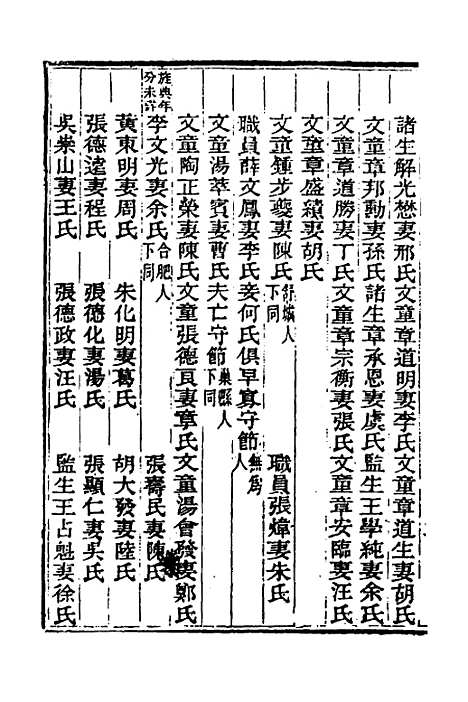 諸生解光懋妻邢氏文童章道明妻李氏文童章道生妻胡氏
文童章邦勳妻孫氏諸生章承恩妻虞氏監生王學純妻余氏
文童章道勝妻丁氏文童章宗衡妻張氏文童章安臨妻汪氏
文童章盛績妻胡氏
文童鍾步夔妻陳氏舒城人下同 職員張煒妻朱氏
職員薛文鳳妻李氏妾何氏俱早寡守節無為人
文童湯萃賓妻曹氏夫亡守節巢縣人下同
文童陶正榮妻陳氏文童張德良妻章氏文童湯會發妻鄭氏
旌典年分未詳
李文光妻余氏合肥人下同 張壽民妻陳氏
黃東明妻周氏 朱化明妻葛氏 胡大發妻陸氏
張德達妻程氏 張德化妻湯氏 張顯仁妻吳氏
吳崇山妻王氏 張德政妻汪氏 監生王占魁妻徐氏